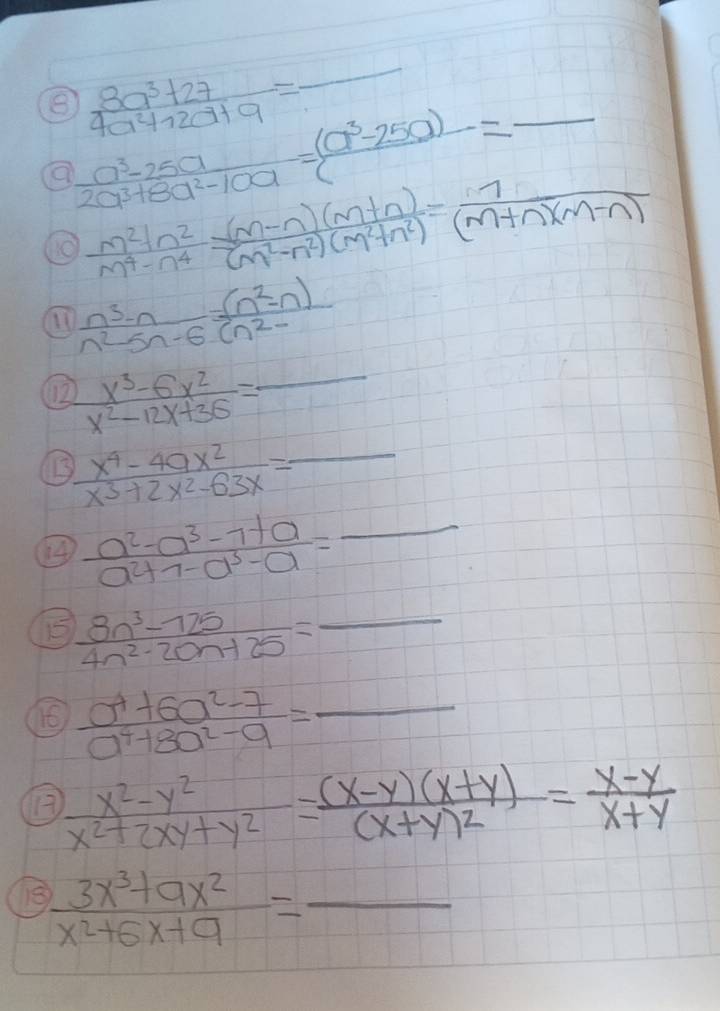 8) (8a³+27)/(4a²+12a+9) = ____
9) (a³-25a)/(2a³+8a²-10a) = (a³-25a)/( = ____
10) (m²+n²)/(m⁴-n⁴) = (m-n)(m+n)/(m²-n²)(m²+n²) = 1/(m+n)(m-n)
11) (n³-n)/(n²-5n-6) = (n²-n)/(n²-
12) (x³-6x²)/(x²-12x+36) = ____
13) (x⁴-49x²)/(x³+2x²-63x) = ____
14) (a²-a³-1+a)/(a²+1-a³-a) = ____
15) (8n³-125)/(4n²-20n+25) = ____
16) (a⁴+6a²-7)/(a⁴+8a²-9) = ____
17) (x²-y²)/(x²+2xy+y²) = (x-y)(x+y)/(x+y)² = (x-y)/(x+y)
18) (3x³+9x²)/(x²+6x+9) = ____